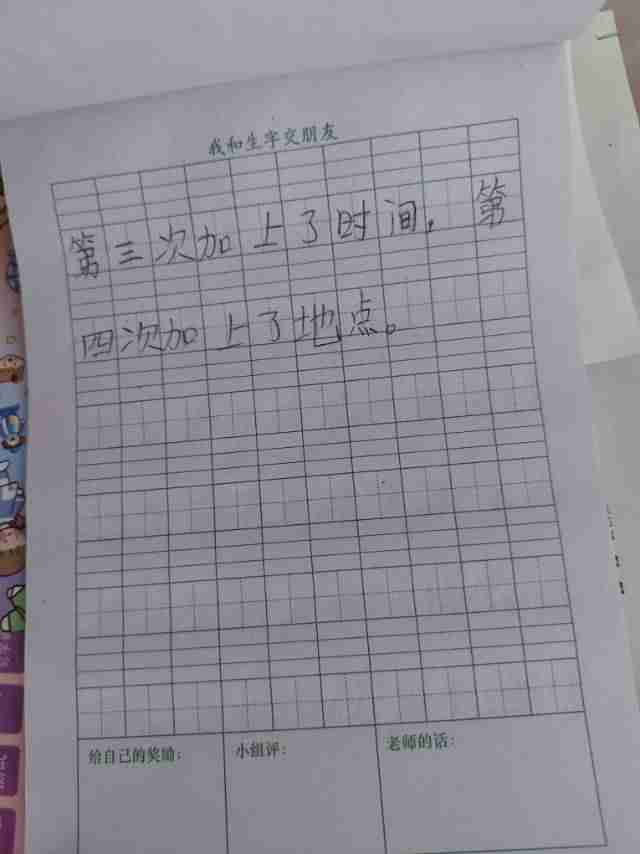 我和生字交朋友
第三次加上了时间。第
四次加上了地点。
给自己的奖励：
小组评：
老师的话：